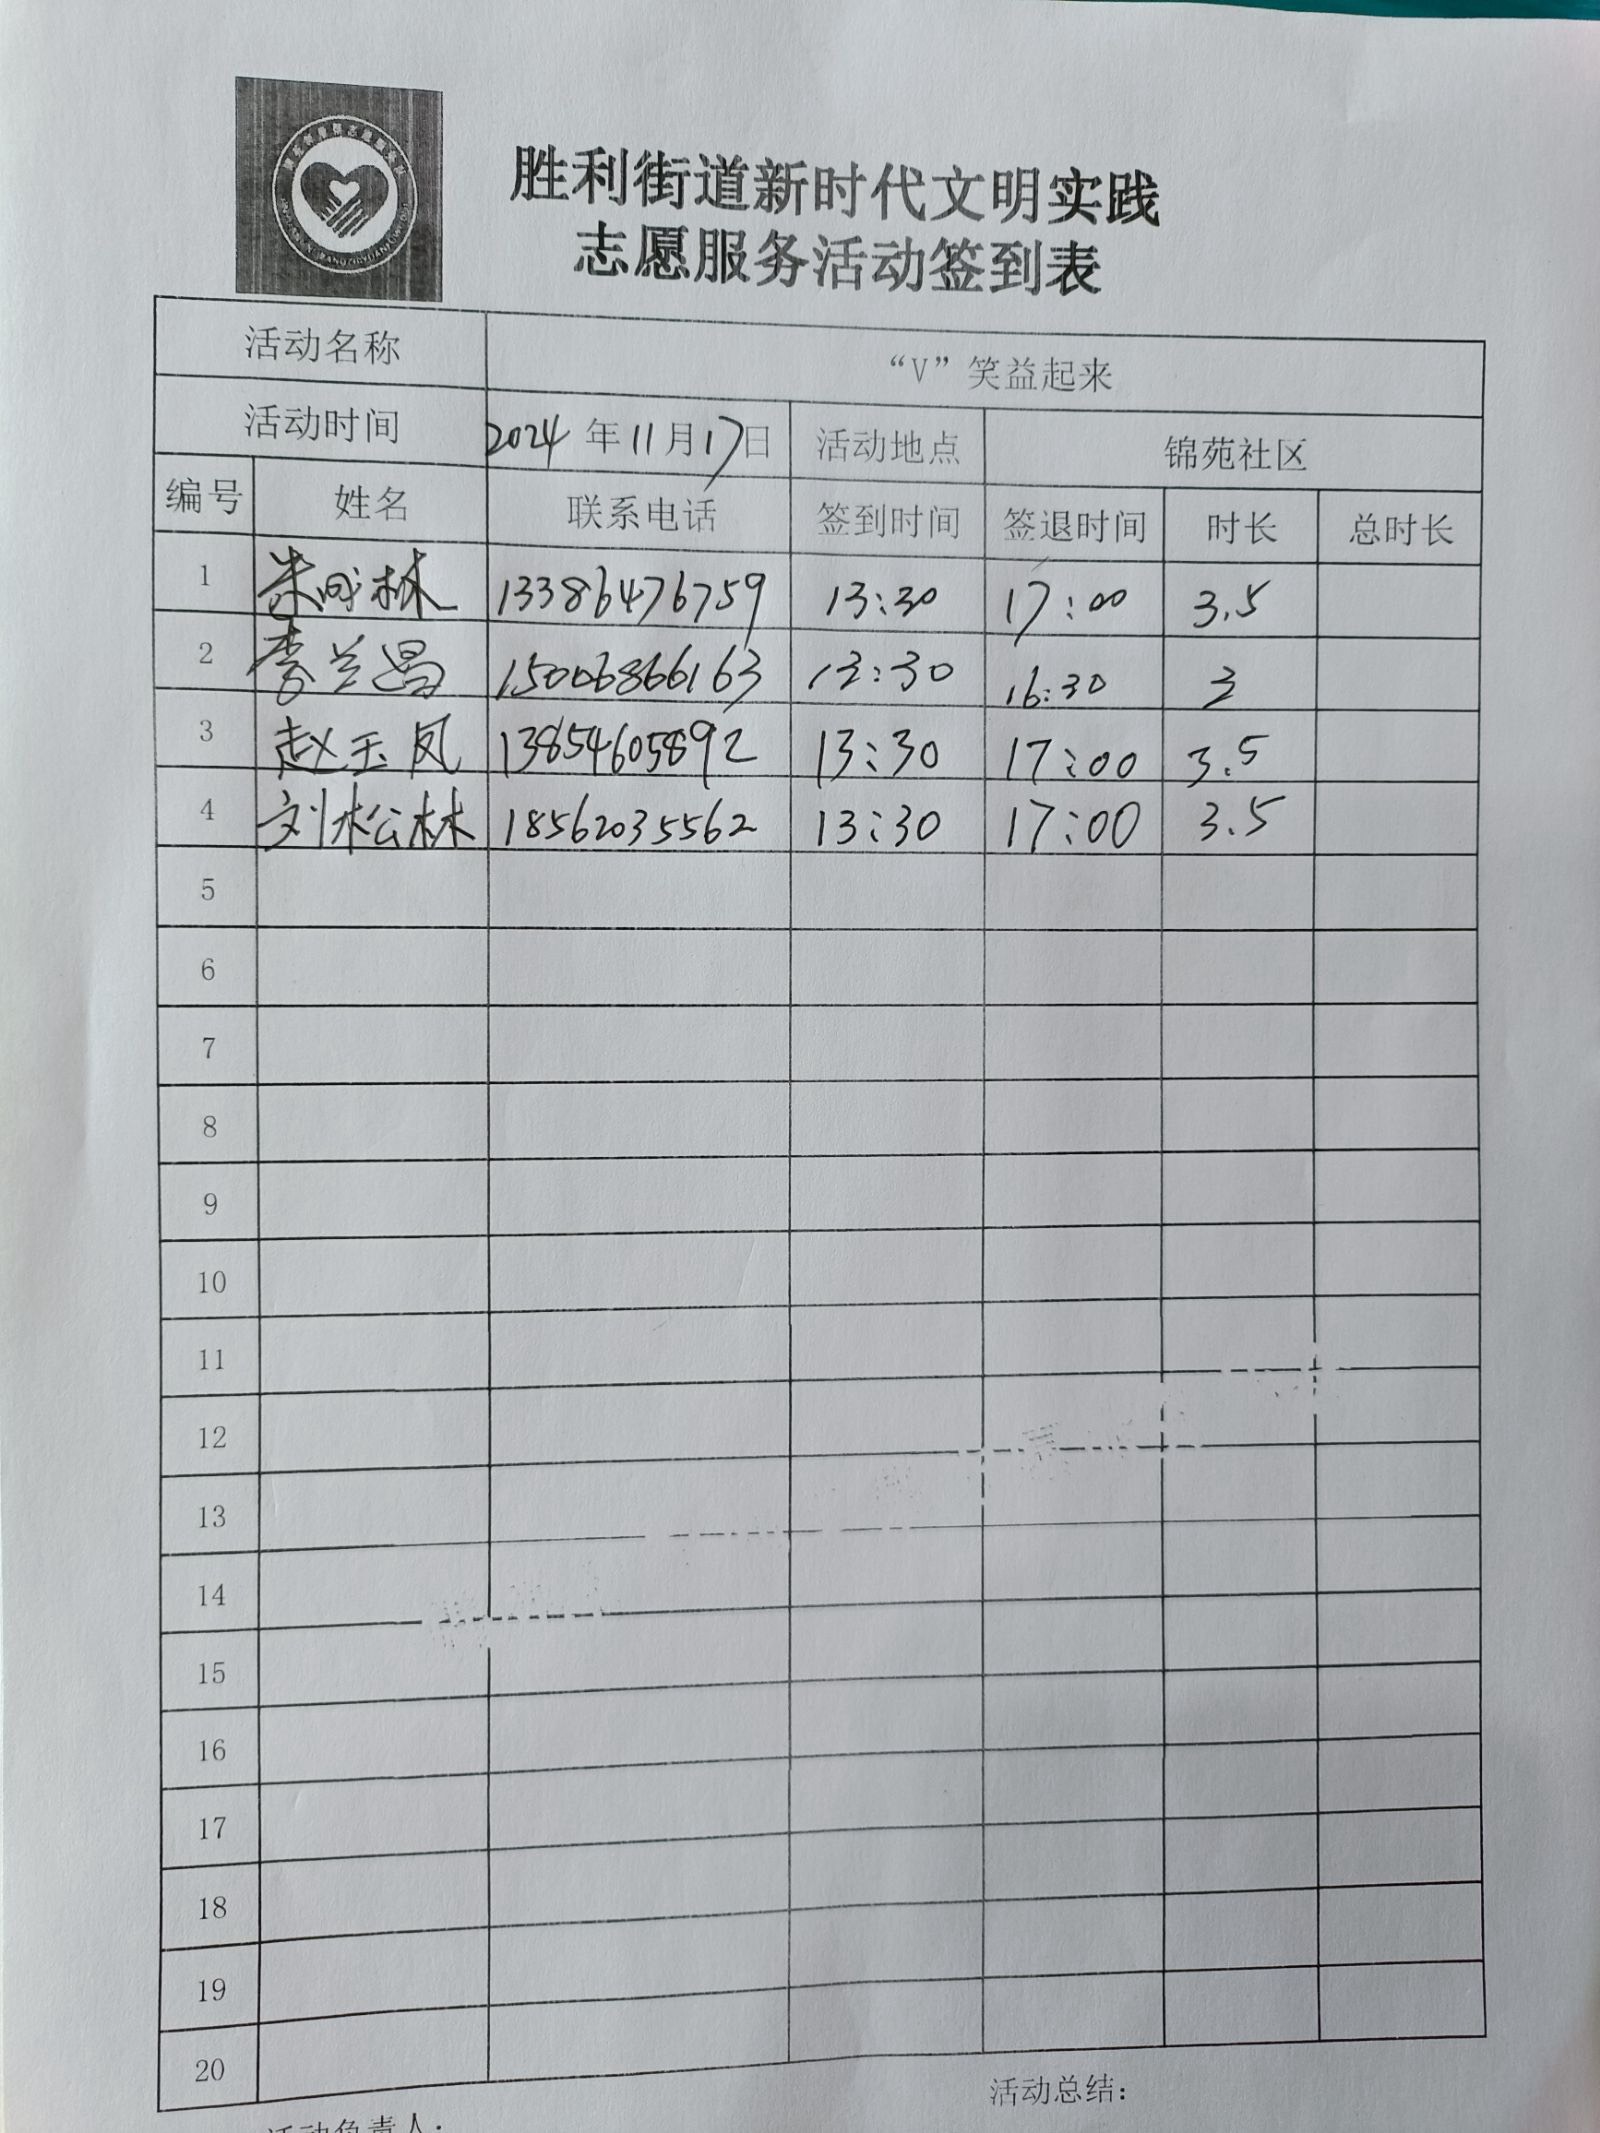 胜利街道新时代文明实践
志愿服务活动签到表
活动名称 “V”笑益起来
活动时间 2024年11月17日 活动地点 锦苑社区
编号 姓名 联系电话 签到时间 签退时间 时长 总时长
1 朱成林 13386476759 13:30 17:00 3.5
2 李兰昌 15006866163 13:30 16:30 3
3 赵玉凤 13854605892 13:30 17:00 3.5
4 刘松林 18562035562 13:30 17:00 3.5
5
6
7
8
9
10
11
12
13
14
15
16
17
18
19
20
活动总结：
活动负责人：